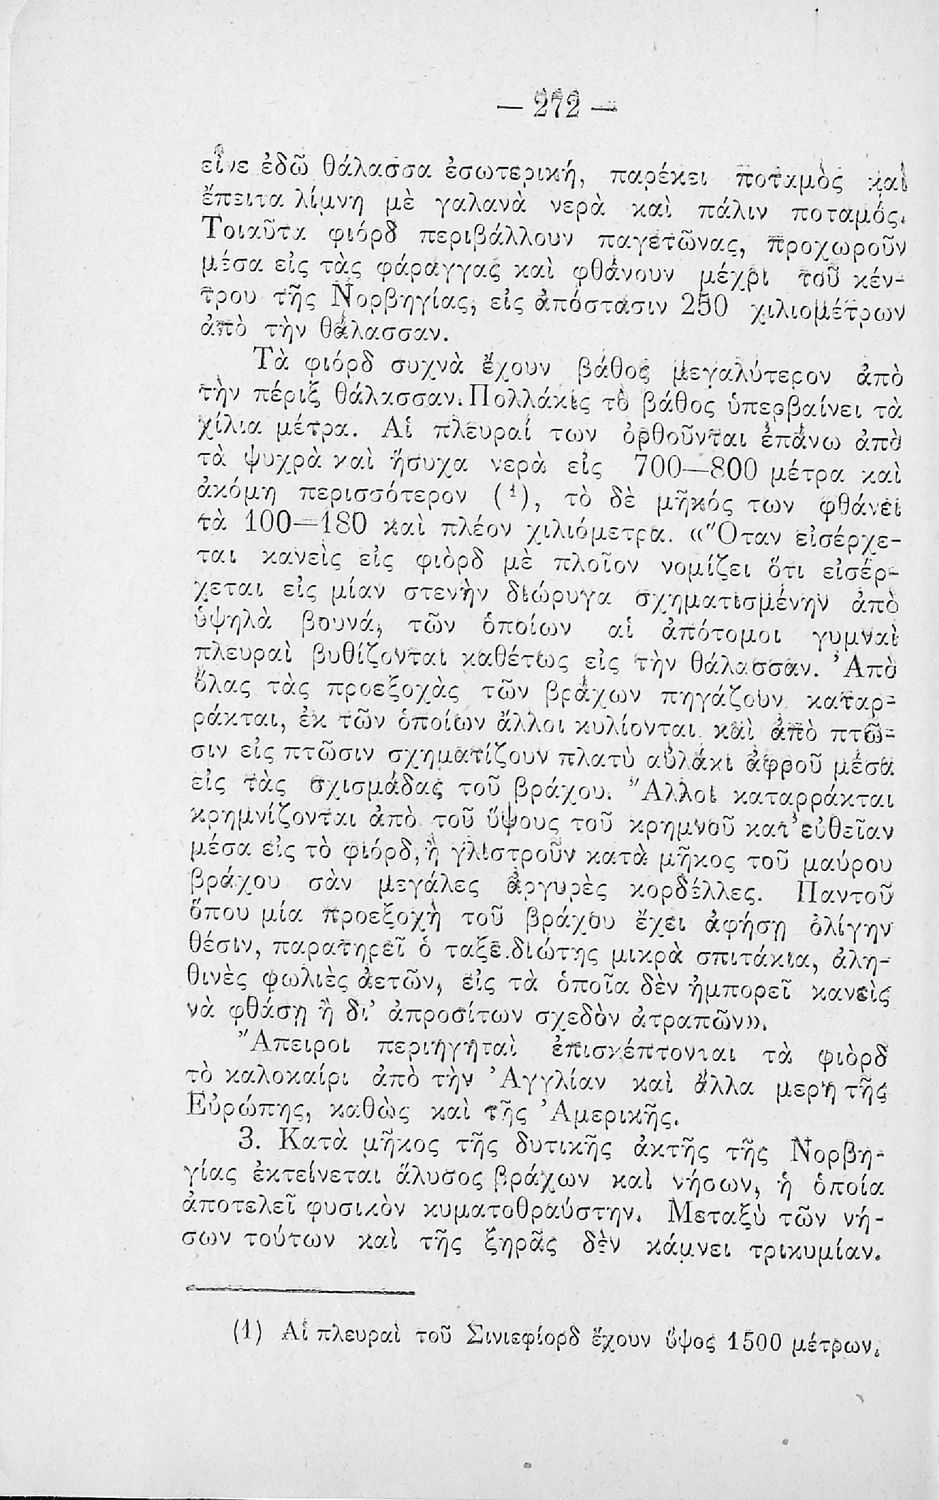 — 272 —
εἶνε ἐδῶ θάλασσα ἐσωτερική, παρέκει ποταμὸς καὶ
ἔπειτα λίμνη μὲ γαλανὰ νερὰ καὶ πάλιν ποταμός.
Τοιαῦτα φιόρδ περιβάλλουν παγετῶνας, προχωροῦν
μέσα εἰς τὰς φάραγγας καὶ φθάνουν μέχρι τοῦ κέν-
τρου τῆς Νορβηγίας, εἰς ἀπόστασιν 250 χιλιομέτρων
ἀπὸ τὴν θάλασσαν.
Τὰ φιόρδ συχνὰ ἔχουν βάθος μεγαλύτερον ἀπὸ
τὴν πέριξ θάλασσαν. Πολλάκις τὸ βάθος ὑπερβαίνει τὰ
χίλια μέτρα. Αἱ πλευραί των ὀρθοῦνται ἐπάνω ἀπὸ
τὰ ψυχρὰ καὶ ἥσυχα νερὰ εἰς 700—800 μέτρα καὶ
ἀκόμη περισσότερον (¹), τὸ δὲ μῆκός των φθάνει
τὰ 100—180 καὶ πλέον χιλιόμετρα. «Ὅταν εἰσέρχε-
ται κανεὶς εἰς φιὸρδ μὲ πλοῖον νομίζει ὅτι εἰσέρ-
χεται εἰς μίαν στενὴν διώρυγα σχηματισμένην ἀπὸ
ὑψηλὰ βουνά, τῶν ὁποίων αἱ ἀπότομοι γυμναὶ
πλευραὶ βυθίζονται καθέτως εἰς τὴν θάλασσαν. Ἀπὸ
ὅλας τὰς προεξοχὰς τῶν βράχων πηγάζουν καταρ-
ράκται, ἐκ τῶν ὁποίων ἄλλοι κυλίονται καὶ ἀπὸ πτῶ-
σιν εἰς πτῶσιν σχηματίζουν πλατὺ αὐλάκι ἀφροῦ μέσα
εἰς τὰς σχισμάδας τοῦ βράχου. Ἄλλοι καταρράκται
κρημνίζονται ἀπὸ τοῦ ὕψους τοῦ κρημνοῦ κατ’ εὐθεῖαν
μέσα εἰς τὸ φιόρδ, ἢ γλιστροῦν κατὰ μῆκος τοῦ μαύρου
βράχου σὰν μεγάλες ἀργυρὲς κορδέλλες. Παντοῦ
ὅπου μία προεξοχὴ τοῦ βράχου ἔχει ἀφήσῃ ὀλίγην
θέσιν, παρατηρεῖ ὁ ταξειδιώτης μικρὰ σπιτάκια, ἀλη-
θινὲς φωλιὲς ἀετῶν, εἰς τὰ ὁποῖα δὲν ἠμπορεῖ κανεὶς
νὰ φθάσῃ ἢ δι’ ἀπροσίτων σχεδὸν ἀτραπῶν».
Ἄπειροι περιηγηταὶ ἐπισκέπτονται τὰ φιὸρδ
τὸ καλοκαίρι ἀπὸ τὴν Ἀγγλίαν καὶ ἄλλα μερη τῆς
Εὐρώπης, καθὼς καὶ τῆς Ἀμερικῆς.
3. Κατὰ μῆκος τῆς δυτικῆς ἀκτῆς τῆς Νορβη-
γίας ἐκτείνεται ἅλυσος βράχων καὶ νήσων, ἡ ὁποία
ἀποτελεῖ φυσικὸν κυματοθραύστην. Μεταξὺ τῶν νή-
σων τούτων καὶ τῆς ξηρᾶς δὲν κάμνει τρικυμίαν.
(1) Αἱ πλευραὶ τοῦ Σινιεφίορδ ἔχουν ὕψος 1500 μέτρων.